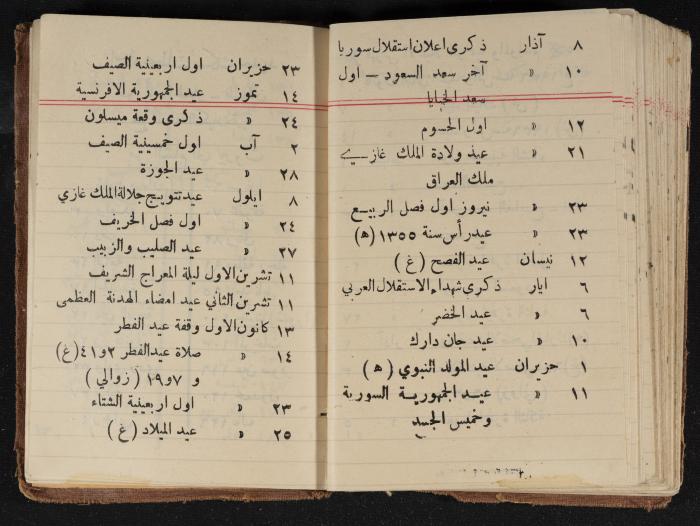 ٨ آذار ذكرى اعلان استقلال سوريا
١٠ « آخر سعد السعود — اول
سعد الخبايا
١٢ « اول الحسوم
٢١ « عيد ولادة الملك غازي
ملك العراق
٢٣ « نيروز اول فصل الربيع
٢٣ « عيد رأس سنة ١٣٥٥ (ﻫ)
١٢ نيسان عيد الفصح (غ)
٦ ايار ذكرى شهداء الاستقلال العربي
٦ « عيد الخضر
١٠ « عيد جان دارك
١ حزيران عيد المولد النبوي (ﻫ)
١١ « عيد الجمهورية السورية
وخميس الجسد
٢٣ حزيران اول اربعينية الصيف
١٤ تموز عيد الجمهورية الافرنسية
٢٤ « ذكرى وقعة ميسلون
٢ آب اول خمسينية الصيف
٢٨ « عيد الجوزة
٨ ايلول عيد تتويج جلالة الملك غازي
٢٤ « اول فصل الخريف
٢٧ « عيد الصليب والزبيب
١١ تشرين الاول ليلة المعراج الشريف
١١ تشرين الثاني عيد امضاء الهدنة العظمى
١٣ كانون الاول وقفة عيد الفطر
١٤ « صلاة عيد الفطر ٢ و٤١ (غ)
و ٧ و١٩ (زوالي)
٢٣ « اول اربعينية الشتاء
٢٥ « عيد الميلاد (غ)